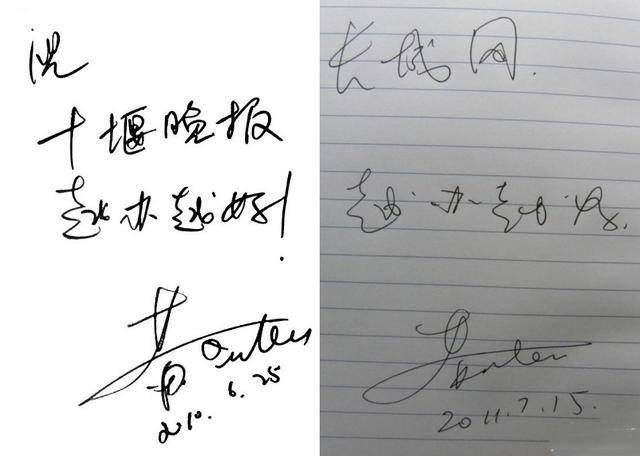 祝
十堰晚报
越办越好!
2010.6.25
长城网.
越办越好.
2011.7.15.